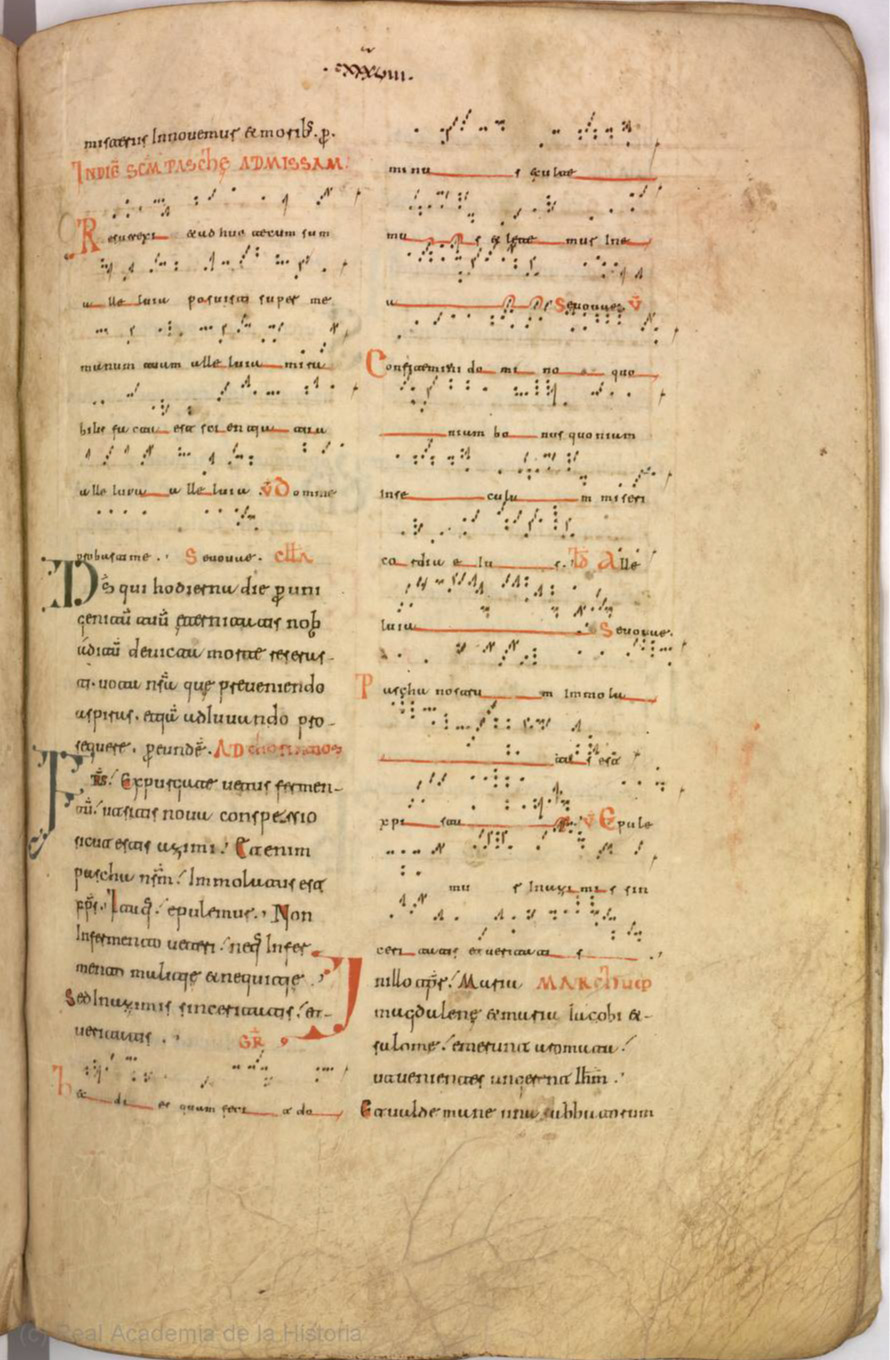 · cxxxviii ·
misteriis Innovemus & morib;. p̄.
INDIĒ SCM̄ PASChę ADMISSAM.
Resurrexi & ad huc tecum sum
alle luia posuisti super me
manum tuam alle luia mira
bilis fac ta est sci en tia tua
alle luia a lle luia . v̄ Domine
probasti me . . Seuouae . cllā
Ds̄ qui hodierna die p uni
genitū tuū ęternitatis nob
aditū devicta morte reseras-
ti. vota nr̄a que preveniendo
aspiras. etiā adiuvando pro-
sequere. p eundē. AD chorintios
FRS̄. Expurgate vetus fermen-
tū. ut sitis nova conspersio
sicut estis azimi. Etenim
pascha nrm̄. Immolatus est
xp̄s. Itaq. epulemur. Non
Infermento veteri. neq Infer
mento malitię & nequitię.
Sed Inazimis sinceritatis. et-
veritatis . .
GR̄
hec di es quam feci t do
minus exulte
mus & lete mur Ine
a Seuouae v̄
Confitemini do mi no quo
niam bo nus quoniam
Inse culu m miseri
cor dia e iu s . Alle
luia Seuouae.
Pascha nostru m Immola
tus est
xpi stus v̄ Epule
mur Inazi mi s sin
ceri tatis et verita ti s
Inillo tp̄r. Maria MARchum
magdalene & maria Iacobi &-
salome. emerunt aromata.
ut venientes ungerent Ihm̄ .
Et valde mane una sabbatorum
(c) Real Academia de la Historia